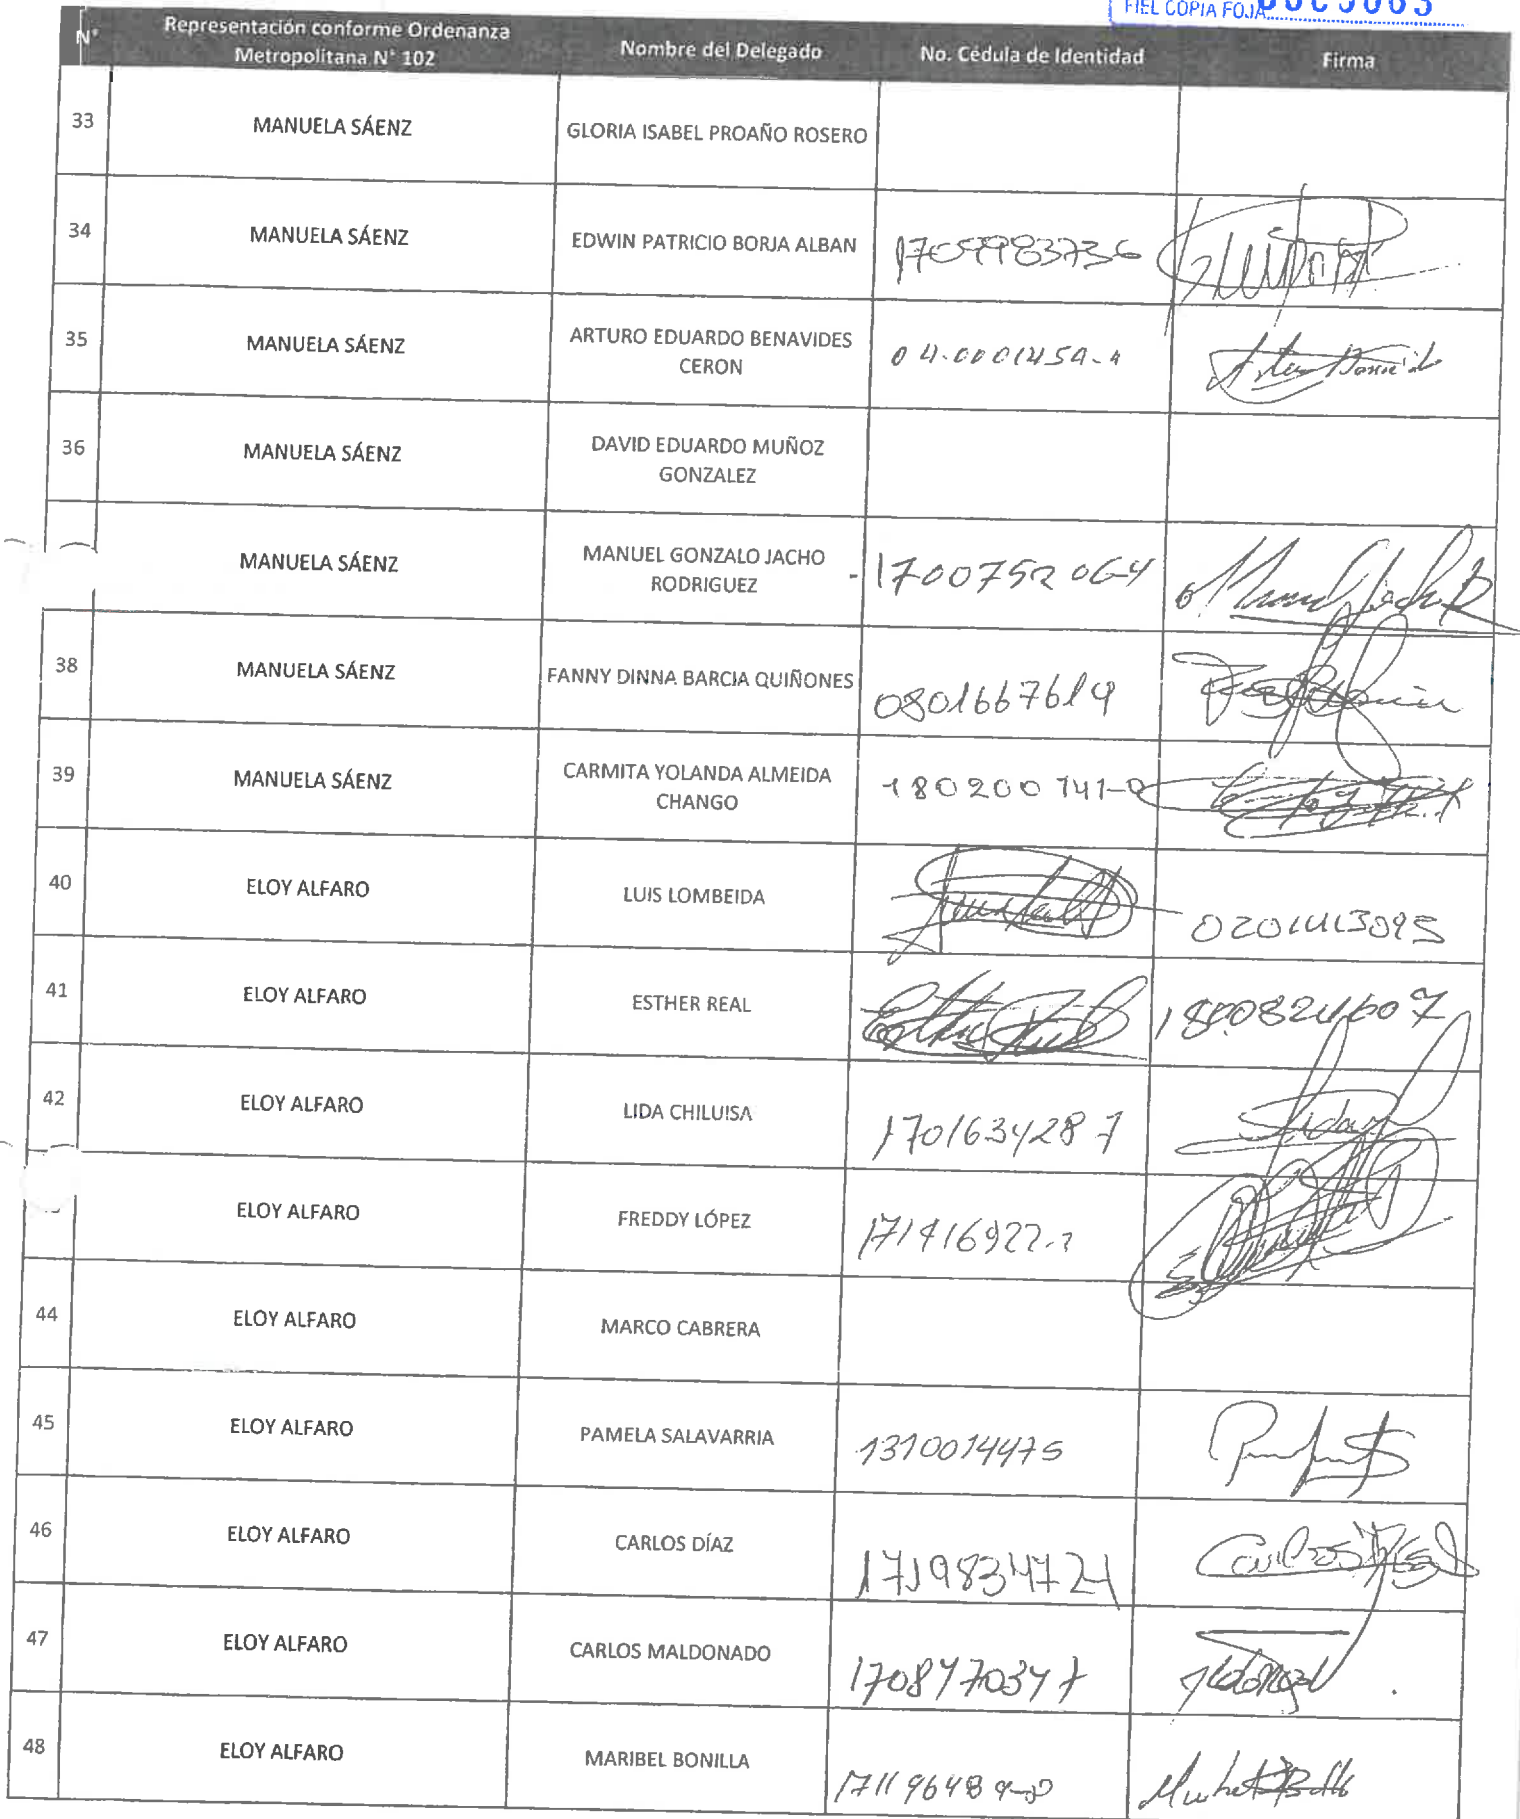 FIEL COPIA FOJA
N°
Representación conforme Ordenanza
Metropolitana N° 102
Nombre del Delegado
No. Cédula de Identidad
Firma
33 MANUELA SÁENZ GLORIA ISABEL PROAÑO ROSERO
34 MANUELA SÁENZ EDWIN PATRICIO BORJA ALBAN 1709983736
35 MANUELA SÁENZ ARTURO EDUARDO BENAVIDES
CERON
36 MANUELA SÁENZ DAVID EDUARDO MUÑOZ
GONZALEZ
MANUELA SÁENZ MANUEL GONZALO JACHO
RODRIGUEZ
1700752064
38 MANUELA SÁENZ FANNY DINNA BARCIA QUIÑONES 0801667619
39 MANUELA SÁENZ CARMITA YOLANDA ALMEIDA
CHANGO
40 ELOY ALFARO LUIS LOMBEIDA
41 ELOY ALFARO ESTHER REAL
42 ELOY ALFARO LIDA CHILUISA 1701634287
ELOY ALFARO FREDDY LÓPEZ
44 ELOY ALFARO MARCO CABRERA
45 ELOY ALFARO PAMELA SALAVARRIA 1310014475
46 ELOY ALFARO CARLOS DÍAZ 1719834721
47 ELOY ALFARO CARLOS MALDONADO 1708470347
48 ELOY ALFARO MARIBEL BONILLA